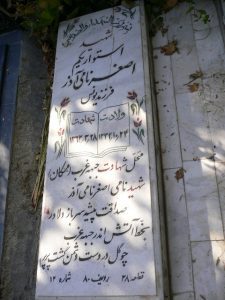 شهید
استوار یکم
اصغر نامی آذر
فرزند یونس
ولادت شهادت
محل شهادت جبهه غرب (مگلان)
شهید نامی اصغر نامی آذر
صداقت پیشه سرباز دلاور
بخط آتش اندر جبهه غرب
چو گل در دست دشمن گشت پرپر
قطعه ۲۸ ردیف ۸۰ شماره ۱۲